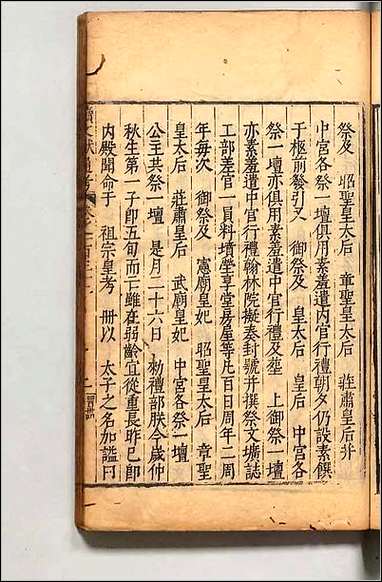 祭及　昭聖皇太后　章聖皇太后　莊肅皇后并
中宮各祭一壇俱用素羞遣內官行禮朝夕仍設素饌
于柩前發引又　御祭及　皇太后　皇后　中宮各
祭一壇亦俱用素羞遣中官行禮及塟　上御祭一壇
亦素羞遣中官行禮翰林院擬奏封號并撰祭文壙誌
工部差官一員料墳塋享堂房屋等凡百日周年二周
年每次　御祭及　憲廟皇妃　昭聖皇太后　章聖
皇太后　莊肅皇后　武廟皇妃　中宮各祭一壇
公主共祭一壇　是月二十六日　勑禮部朕今歲仲
秋生第一子卽五旬而亡雖在弱齡宜從重長昨已卽
內殿聞命于　祖宗皇考　冊以　太子之名加謚曰
續文獻通考